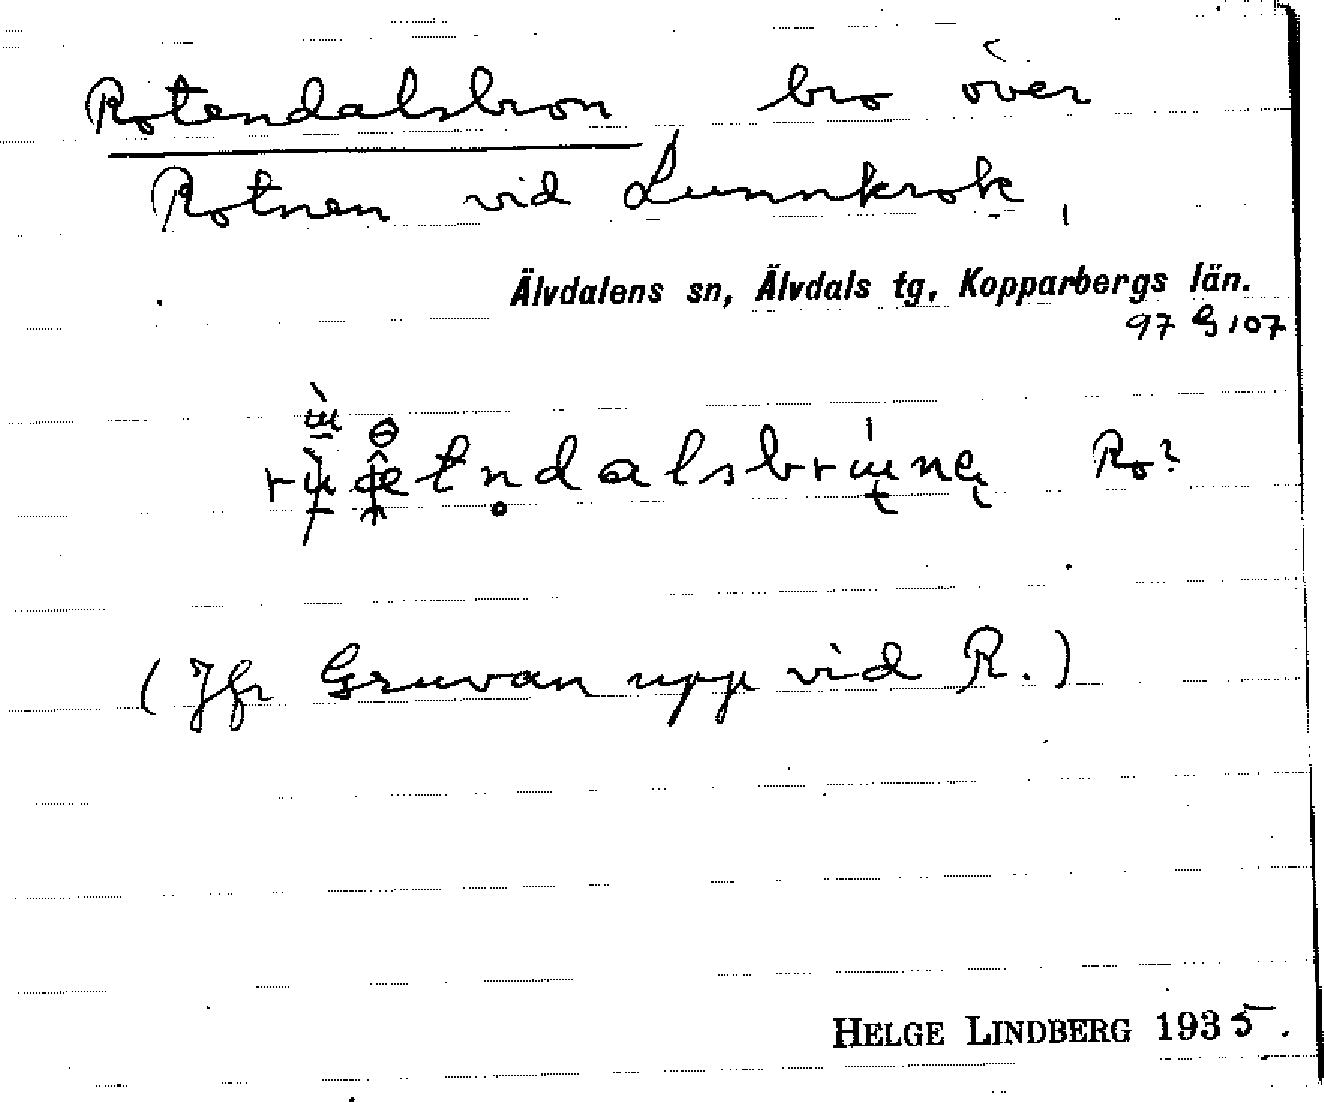 Rotendalsbron bro över
Rotnen vid Lunnkrok,
Älvdalens sn, Älvdals tg, Kopparbergs län.
97 G 107
Ro?
(Jfr Gruvan upp vid R.)
HELGE LINDBERG 1935.